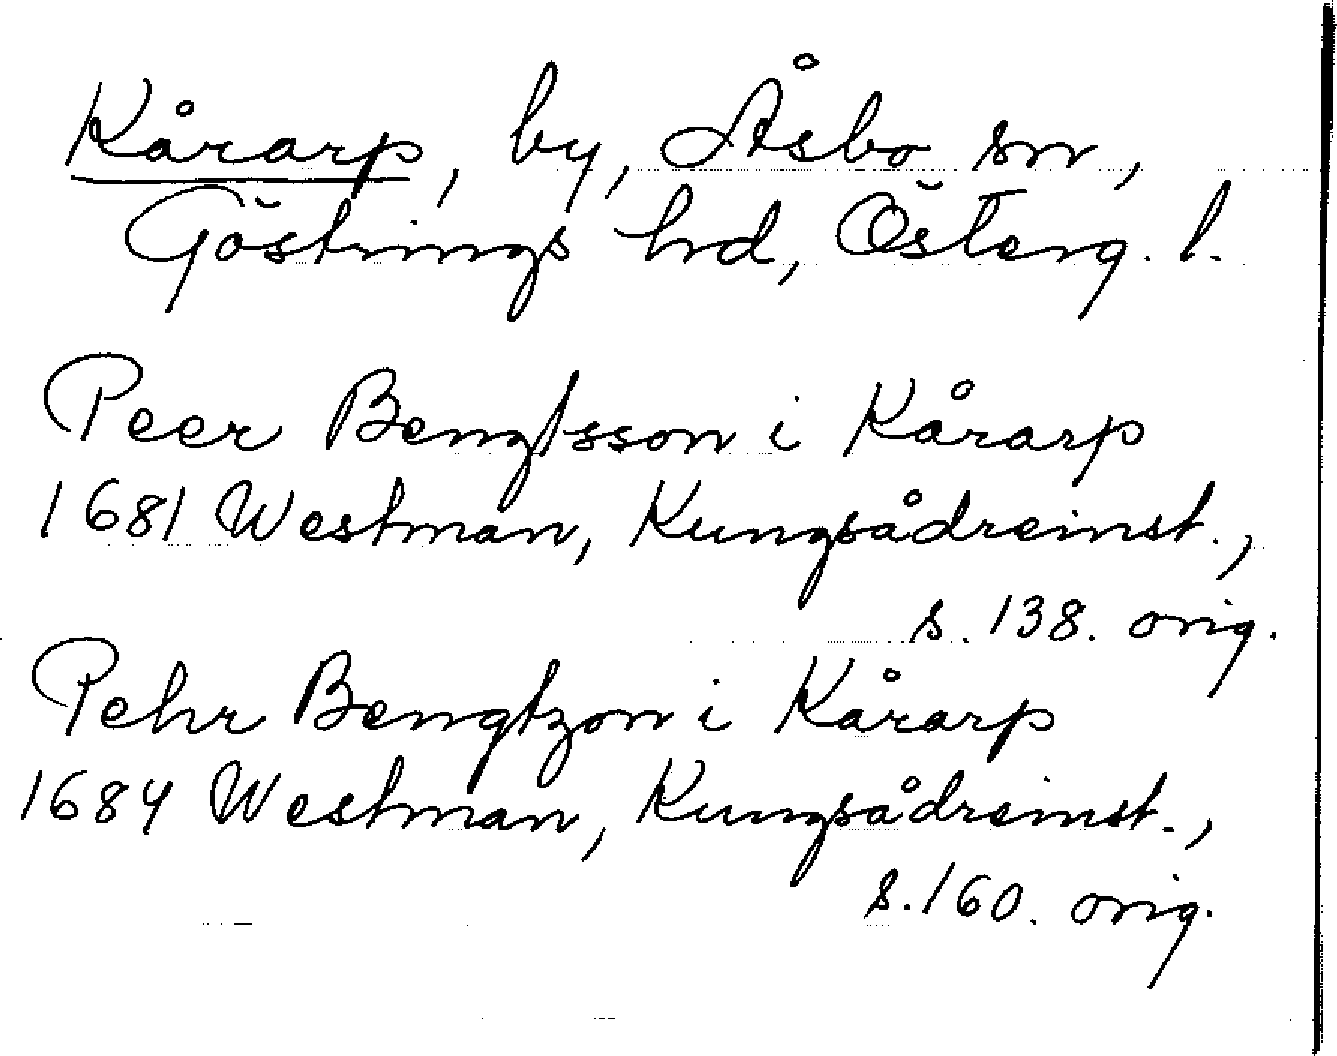 Kårarp, by, Åsbo sn,
Göstrings hd, Österg. l.
Peer Bengtsson i Kårarp
1681 Westman, Kungsådreinst.,
s. 138. orig.
Pehr Bengtzon i Kårarp
1684 Westman, Kungsådreinst.,
s. 160. orig.